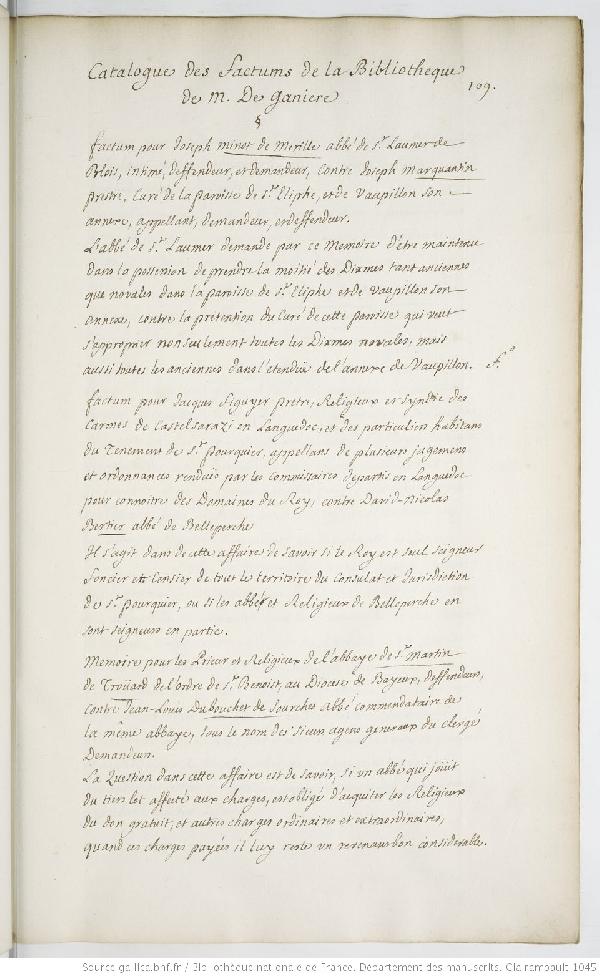 Catalogue des factums de la Bibliotheque
de M. De ganiere
109.
§
factum pour Joseph minot de Merille abbé de St. Laumer de
Blois, intimé, deffendeur, et demandeur, contre Joseph Marquantin
prestre, Curé de la paroisse de St. Eliphe, et de Vaupillon son
annexe, appellant, demandeur, et deffendeur.
L'abbé de St. Laumer demande par ce Memoire d'être maintenu
dans la possession de prendre la moitié des Dixmes tant anciennes
que novales dans la paroisse de St. Eliphe et de Vaupillon son
annexe, contre la pretention du Curé de cette paroisse qui veut
s'approprier non seulement toutes les Dixmes novales, mais
aussi toutes les anciennes dans l'etenduë de l'annexe de Vaupillon. fo.
factum pour Jacques Seguyer pretre, Religieux et syndic des
Carmes de Castelsarazi en Languedoc, et des particuliers habitans
du Tenement de St. pourquier, appellans de plusieurs jugemens
et ordonnances renduës par les Commissaires departis en Languedoc
pour connoitre des Domaines du Roy, contre David-Nicolas
Bertier abbé de Belleperche
Il s'agit dans cette affaire de savoir si le Roy est seul seigneur
foncier et Censier de tout le territoire du Consulat et Jurisdiction
de St. pourquier, ou si les abbé et Religieux de Belleperche en
sont seigneurs en partie.
Memoire pour les Prieur et Religieux de l'abbaye de St. Martin
de Troüard de l'ordre de St. Benoist, au Diocese de Bayeux, deffendeurs,
contre Jean-Louis Dubouchet de Sourches abbé commendataire de
la même abbaye, sous le nom des sieurs agens generaux du clergé
Demandeur.
La Question dans cette affaire est de savoir, si un abbé qui joüit
du tiers lot affecté aux charges, est obligé d'aquiter les Religieux
du don gratuit, et autres charges ordinaires et extraordinaires,
quand ces charges payées il luy reste un revenant bon considerable.
Source gallica.bnf.fr / Bibliothèque nationale de France. Département des manuscrits. Clairambault 1045